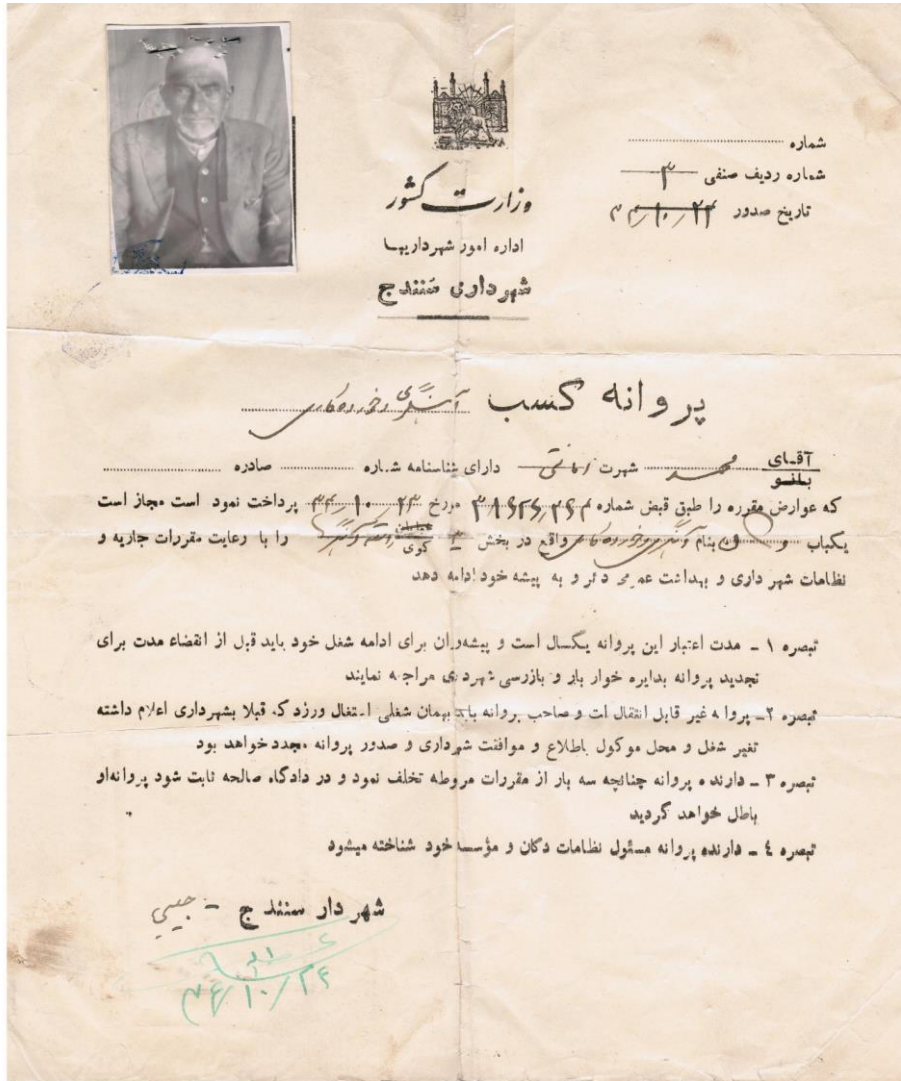 شماره
شماره ردیف صنفی ۳
تاریخ صدور
وزارت کشور
اداره امور شهرداریها
شهرداری سنندج
پروانه کسب
آقای محمد شهرت امانتی دارای شناسنامه شماره صادره
بانو
که عوارض مقرره را طبق قبض شماره مورخ ۲۳/۱۰/۳۴ پرداخت نمود است مجاز است
یکباب و بنام واقع در بخش ۳ کوی را با رعایت مقررات جاریه و
نظامات شهرداری و بهداشت عمومی دائر و به پیشه خود ادامه دهد
تبصره ۱ ـ مدت اعتبار این پروانه یکسال است و پیشه‌وران برای ادامه شغل خود باید قبل از انقضاء مدت برای
تجدید پروانه بدایره خوار بار و بازرسی شهرداری مراجعه نمایند
تبصره ۲ـ پروانه غیر قابل انتقال است و صاحب پروانه باید بهمان شغلی اشتغال ورزد که قبلا بشهرداری اعلام داشته
تغیر شغل و محل موکول باطلاع و موافقت شهرداری و صدور پروانه مجدد خواهد بود
تبصره ۳ ـ دارنده پروانه چنانچه سه بار از مقررات مربوطه تخلف نمود و در دادگاه صالحه ثابت شود پروانه‌او
باطل خواهد گردید
تبصره ٤ ـ دارنده پروانه مسئول نظامات دکان و مؤسسه خود شناخته میشود
شهردار سنندج - حبیبی
۳۴/۱۰/۲۴